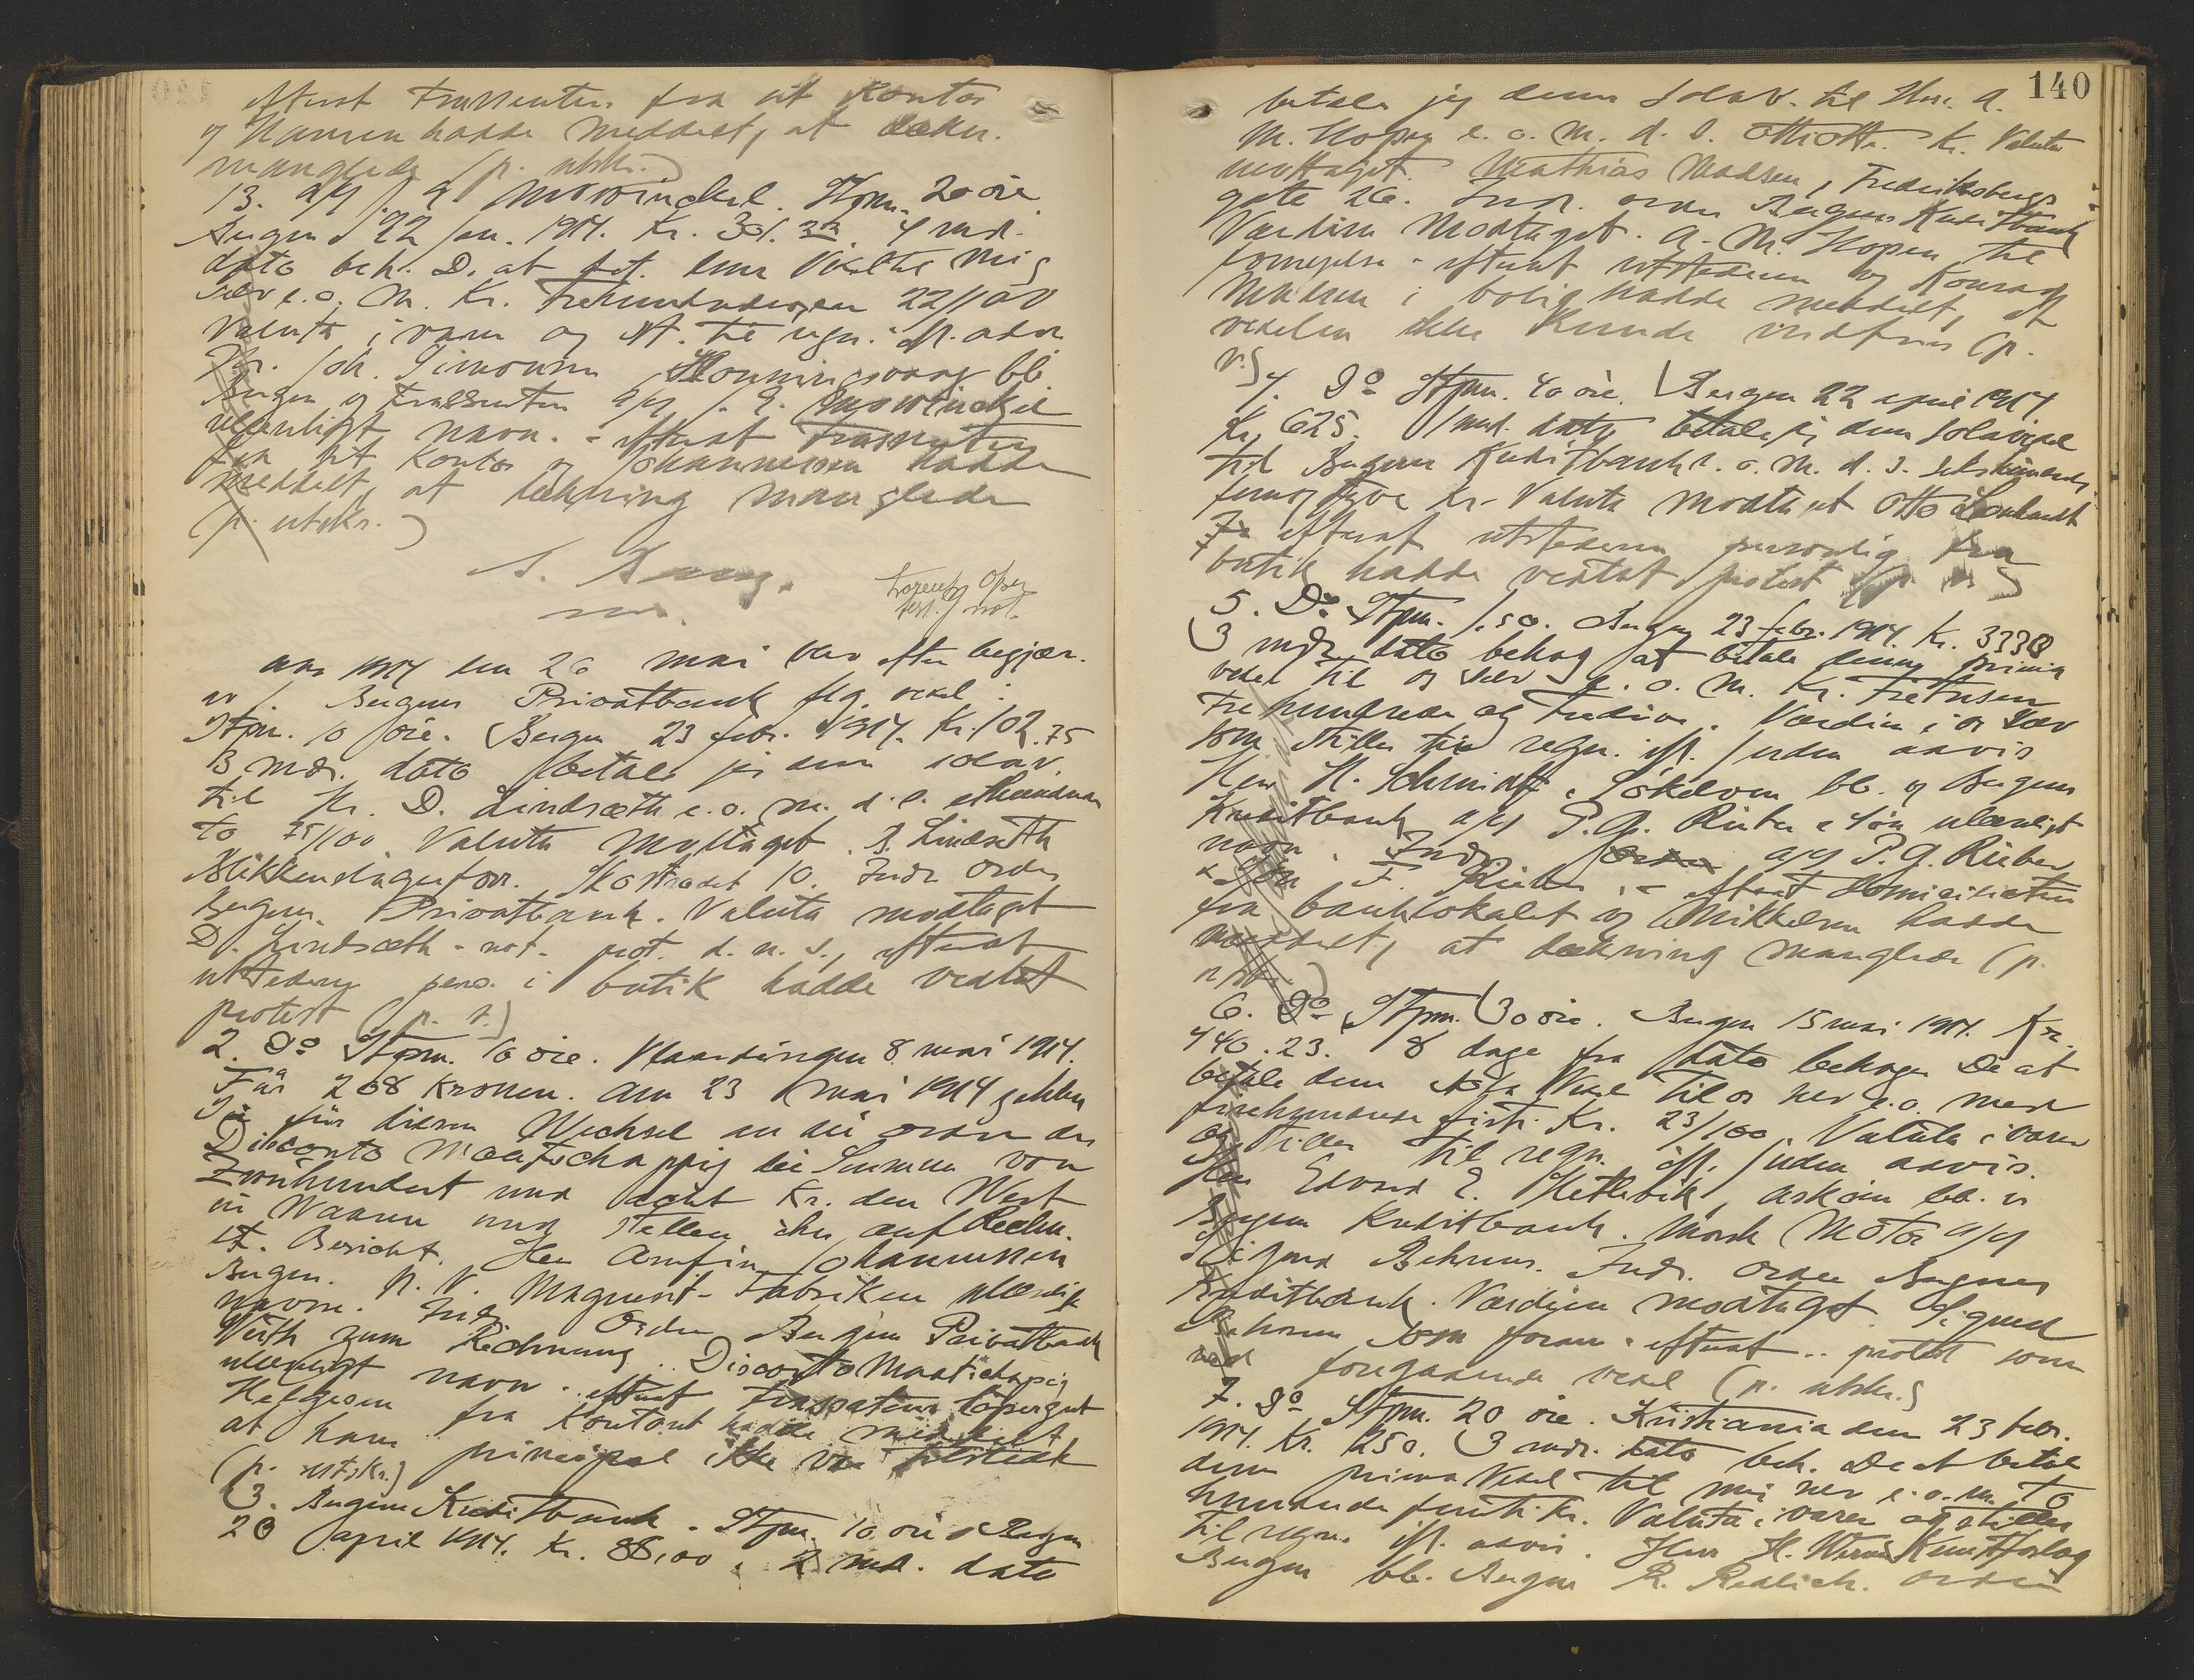 efterat trassenten fra sit Kontor
og Hansen hadde meddelt, at dækn.
manglede (p. utskr.)
13. a/s J. E. Mowinckel. Stpm. 20 øre.
Bergen d 22 jan. 1914. Kr. 301.22. 4 md.
dato beh. D. at bet. denne Veksel til mig
selv e. o. M. Kr. Trehundredeogen 22/100
Valuta i varer og st. til regn. ift. advis
Hr. Joh. Simonsen Honningsvaag bb.
Bergen og trassenten a/s J. E. Mowinckel
ulæseligt navn. - efterat trassenten
fra sit Kontor og Johannessen hadde
meddelt, at dækning manglede
(p. utskr.)
Aar 1914 den 26 mai blev efter begjær.
av 1. Bergens Privatbank flg. veksel:
Stpm. 10 øre. Bergen 23 febr. 1914. Kr. 102.75
3 mdr. dato betaler jeg denne solav.
til Hr. D. Lindsæth e. o. m. d. s. ethundrede
to 75/100 Valuta modtaget. B. Lindseth
Blikkenslagerforr. Skostrædet 10. Indr. Order
Bergens Privatbank. Valuta modtaget
D. Lindsæth - not. prot. d. n. s., efterat
utstederen pers. i butik hadde vedtat
protest (p. s.)
2. Do Stpm. 10 øre. Vlaardingen 8 mai 1914.
Für 208 Kronen. Am 23 mai 1914 zahlen
Sie für diesen Wechsel an die Order der
Disconto Maatschappij die Summe von
Zweihundert und acht Kr. den Wert
in Waaren und stellen ihn auf Rechn.
lt. Bericht. Herr Arnfin Johannessen
Bergen. N. V. Magnesit-Fabriken ulæselig
navn. Indr. Order Bergens Privatbank
Werth zum Rechnung. Disconto Maatschapij
ulæseligt navn - efterat trassatens løpergut
Helgesen fra Kontoret hadde meddelt,
at hans principal ikke var tilstede
(p. utskr.)
3. Bergens Kreditbank - Stpm. 10 øre Bergen
20 april 1914. Kr. 88,00. 1 md. dato
140
betaler jeg denne Solav. til Herr A.
M. Hopen e. o. M. d. s. Ottiotte Kr. Valuta
mottaget. Mathias Madsen, Fredriksbergs
gate 26. Indr. order Bergens Kreditbank
Værdien modtaget. A. M. Hopen til
fornyelse - efterat utstederen og Konrad
Madsen i bolig hadde meddelt, at
vekslen ikke kunde indfries (p.
v.)
4. Do Stpm. 40 øre. Bergen 22 april 1914
Kr. 625. 1 md. dato betaler jeg denne solaveksel
til Bergens Kreditbank e. o. M. d. s. Sekshundrede
femogtyve Kr. Valuta modtaget Otto Leonhardt
efterat utstederen personlig fra
butik hadde vedtat protest
5. Do Stpm. 1.50. Bergen 23 febr. 1914. Kr. 3330
3 mdr. dato behag at betale denne prima
veksel til os selv e. o. M. Kr. Tretusen
Trehundrede og tredive. Værdien i os selv
som stilles til regn. ift. / uden advis
Herr H. Schmidt, Søkelven bb. og Bergens
Kreditbank a/s P. G. Rieber & Søn ulæseligt
navn. Indr. Order a/s P. G. Rieber
& Søn F. Rieber. - efterat domiciliaten
fra banklokalet og Mikkelsen hadde
meddelt, at dækning manglede (p.
utskr.)
6. Do Stpm. 30 øre. Bergen 15 mai 1914. Kr.
440.23. 8 dage fra dato behager De at
betale denne Veksel til os selv e. o. med
firehundrede firti Kr. 23/100. Valuta i varer
og stilles til regn. ift. / uden advis.
Herr Edvard E. Hetlevik, Askøen bb. i
Bergens Kreditbank. Norsk Motor a/s
Sigurd Behrens. Indr. Order Bergens
Kreditbank. Værdien modtaget. Sigurd
Behrens som foran - efterat .. protest som
ved foregaaende veksel (p. utskr.)
7. Do Stpm. 20 øre. Kristiania den 23 febr.
1914. Kr. 250. 3 mdr. dato beh. De at betale
denne prima Veksel til mig selv e. o. m. To
hundrede femti Kr. Valuta i varer og stilles
til regn. ift. advis. Herr H. Werner Kunstforlag
Bergen bb. Bergen R. Redlich. Order